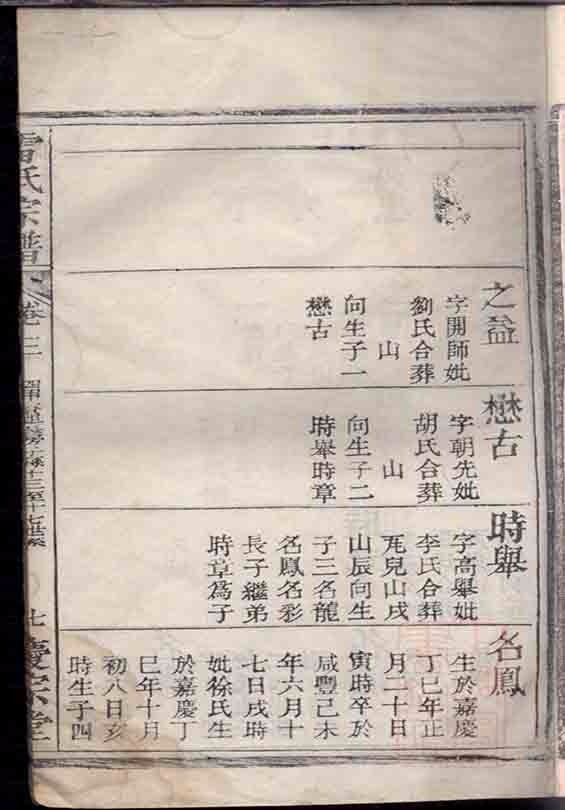 之益
字開師妣
劉氏合葬
山
向生子一
懋古
懋古
字朝先妣
胡氏合葬
山
向生子二
時舉時章
時舉
字高舉妣
李氏合葬
兒山戌
山辰向生
子三名龍
名鳳名彩
長子繼弟
時章爲子
名鳳
生於嘉慶
丁巳年正
月二十日
寅時卒於
咸豐己未
年六月十
七日戌時
妣徐氏生
於嘉慶丁
巳年十月
初八日亥
時生子四
氏宗譜
卷三
七
慶宗堂